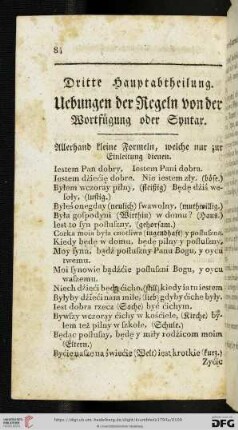 84
Dritte Hauptabtheilung.
Uebungen der Regeln von der
Wortfügung oder Syntax.
Allerhand kleine Formeln, welche nur zur
Einleitung dienen.
Iestem Pan dobry. Iestem Pani dobra.
Iestem dźiećię dobre. Nie iestem zły. (böse.)
Byłem wczoray pilny. (fleißig) Będę dźiś we-
soły. (lustig.)
Byłeś onegday (neulich) swawolny. (muthwillig.)
Była gospodyni (Wirthin) w domu? (Haus.)
Iest to syn posłuszny. (gehorsam.)
Corka moia była cnotliwa (tugendhaft) y posłuszna.
Kiedy będę w domu, będę pilny y posłuszny.
Moy syna, bądź posłuszny Panu Bogu, y oycu
twemu.
Moi synowie bądźćie posłuszni Bogu, y oycu
waszemu.
Niech dźieći będą ćicho (still) kiedy ia tu iestem
Byłyby dźieći nam miłe, (lieb) gdyby ćiche były.
Iest dobra rzecz (Sache) być ćichym.
Bywszy wczoray ćichy w kośćiele, (Kirche) by-
łem też pilny w szkole, (Schule.)
Będąc posłuszny, będę y miły rodźicom moim
(Eltern.)
Byćie nasze na świećie (Welt) iest krotkie (kurz.)
Zyćie